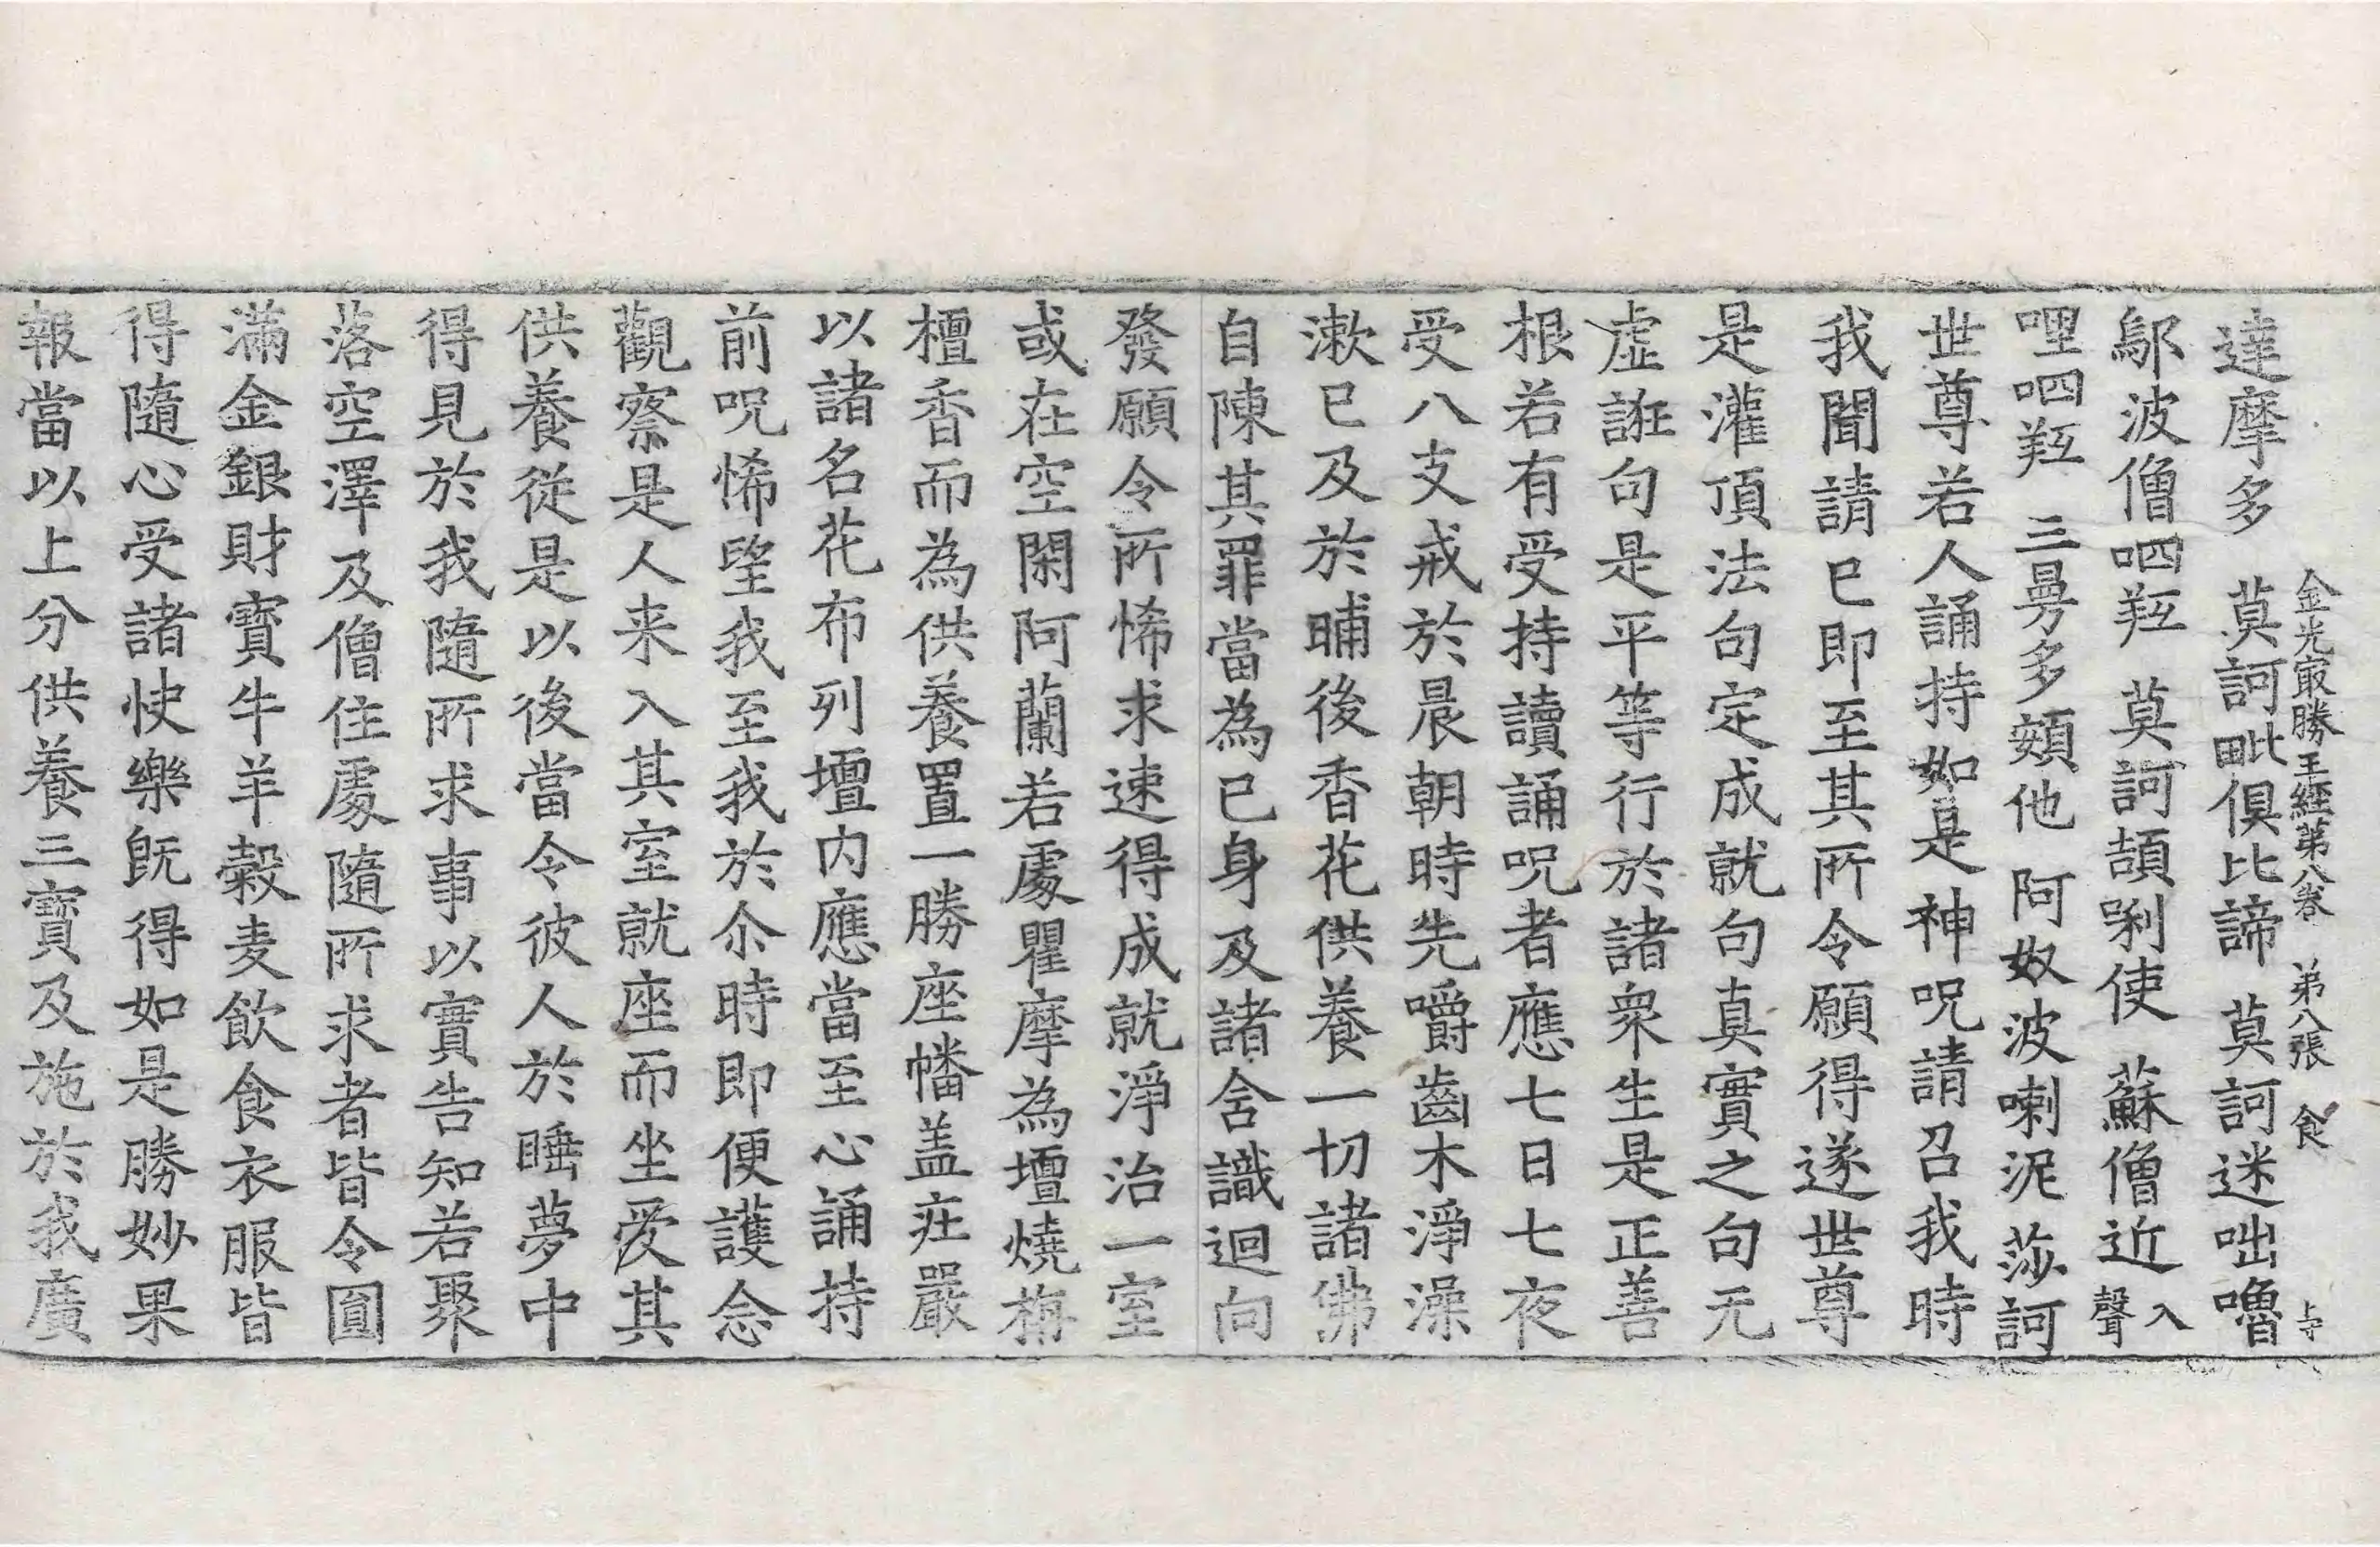 金光㝡勝王經第八卷 第八張 食
達摩多 莫訶毗俱比諦 莫訶迷咄嚕 上
鄔波僧呬羟 莫訶頡唎使 蘇僧近 入聲
哩呬羟 三曼多頞他 阿奴波喇泥 莎訶
世尊若人誦持如是神呪請召我時
我聞請已即至其所令願得遂世尊
是灌頂法句定成就句真實之句无
虛誑句是平等行於諸衆生是正善
根若有受持讀誦呪者應七日七夜
受八支戒於晨朝時先嚼齒木淨澡
漱已及於晡後香花供養一切諸佛
自陳其罪當為已身及諸含識迴向
發願令所悕求速得成就淨治一室
或在空閑阿蘭若處瞿摩為壇燒栴
檀香而為供養置一勝座幡盖莊嚴
以諸名花布列壇内應當至心誦持
前呪悕望我至我於尒時即便護念
觀察是人来入其室就座而坐受其
供養從是以後當令彼人於睡夢中
得見於我隨所求事以實告知若聚
落空澤及僧住處隨所求者皆令圓
滿金銀財寶牛羊穀麦飲食衣服皆
得隨心受諸快樂既得如是勝妙果
報當以上分供養三寶及施於我廣